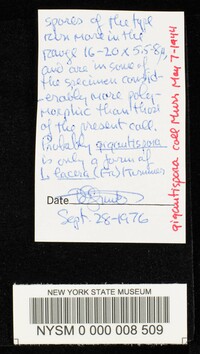 spores of the type
run more in the
range 16-20 x 5.5-8µ,
and are in some of
the specimen consid-
erably more poly-
morphic than those
of the present coll.
Probably gigantispora
is only a form of
I. lacera (Fr.)
Date
Sept. 28-1976
gigantispora coll Murr May 7-1944
NEW YORK STATE MUSEUM
NYSM 0 000 008 509